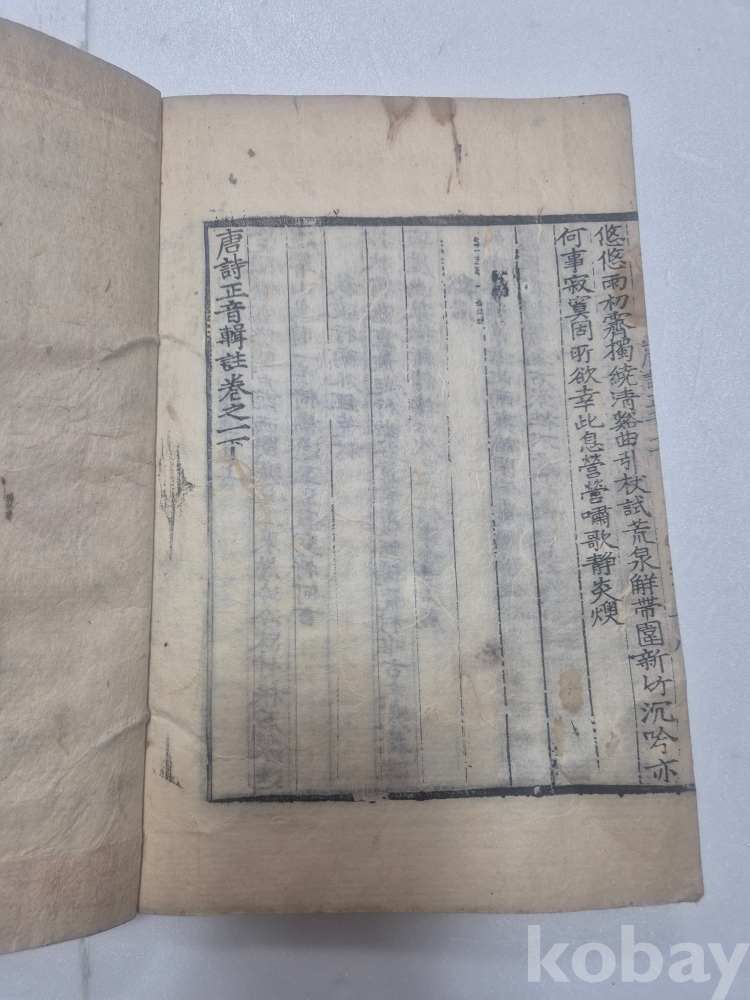 悠悠雨初霽獨繞清谿曲引杖試荒泉解帶圍新竹沉吟亦
何事寂寞固所欲幸此息營營嘯歌静炎燠
唐詩正音輯註卷之一下
kobay